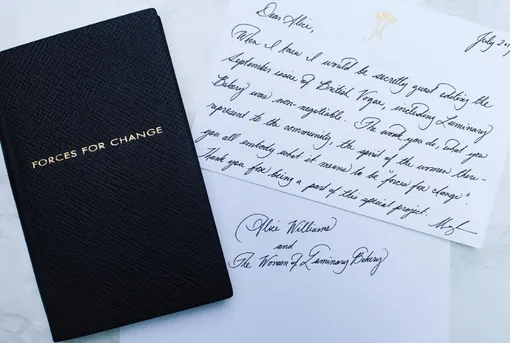 FORCES FOR CHANGE
Dear Alice,
July 2019
When I knew I would be secretly guest editing the
September issue of British Vogue, including Luminary
Bakery was non-negotiable. The work you do, what you
represent to the community, the spirit of the women there -
you all embody what it means to be "forces for change".
Thank you for being a part of this special project.
Alice Williams
and
The Women of Luminary Bakery